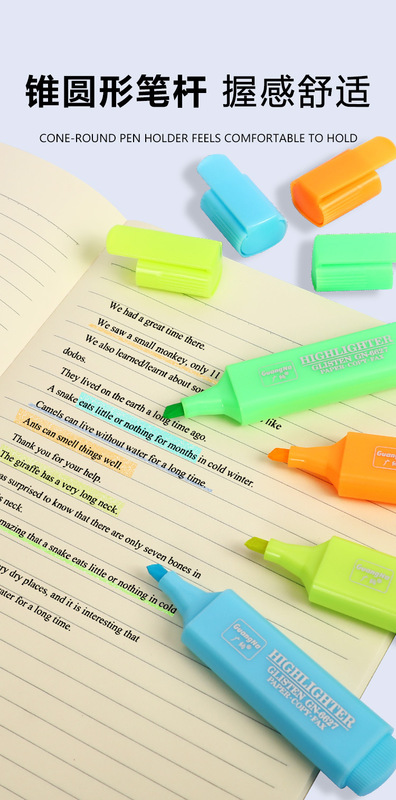 锥圆形笔杆 握感舒适
CONE-ROUND PEN HOLDER FEELS COMFORTABLE TO HOLD
We had a great time there.
We saw a small monkey, only 11
We also learned/learnt about som
dodos.
They lived on the earth a long time ago.
like
A snake eats little or nothing for months in cold winter.
Camels can live without water for a long time.
Ants can smell things well.
Thank you for your help.
The giraffe has a very long neck.
was surprised to know that there are only seven bones in
s neck.
mazing that a snake eats little or nothing in cold
ery dry places, and it is interesting that
ater for a long time.
GuangNa
HIGHLIGHTER
GLISTEN GN-6627
PAPER·COPY·FAX
GuangNa
广纳
GuangNa
广纳
HIGHLIGHTER
GLISTEN GN-6627
PAPER·COPY·FAX